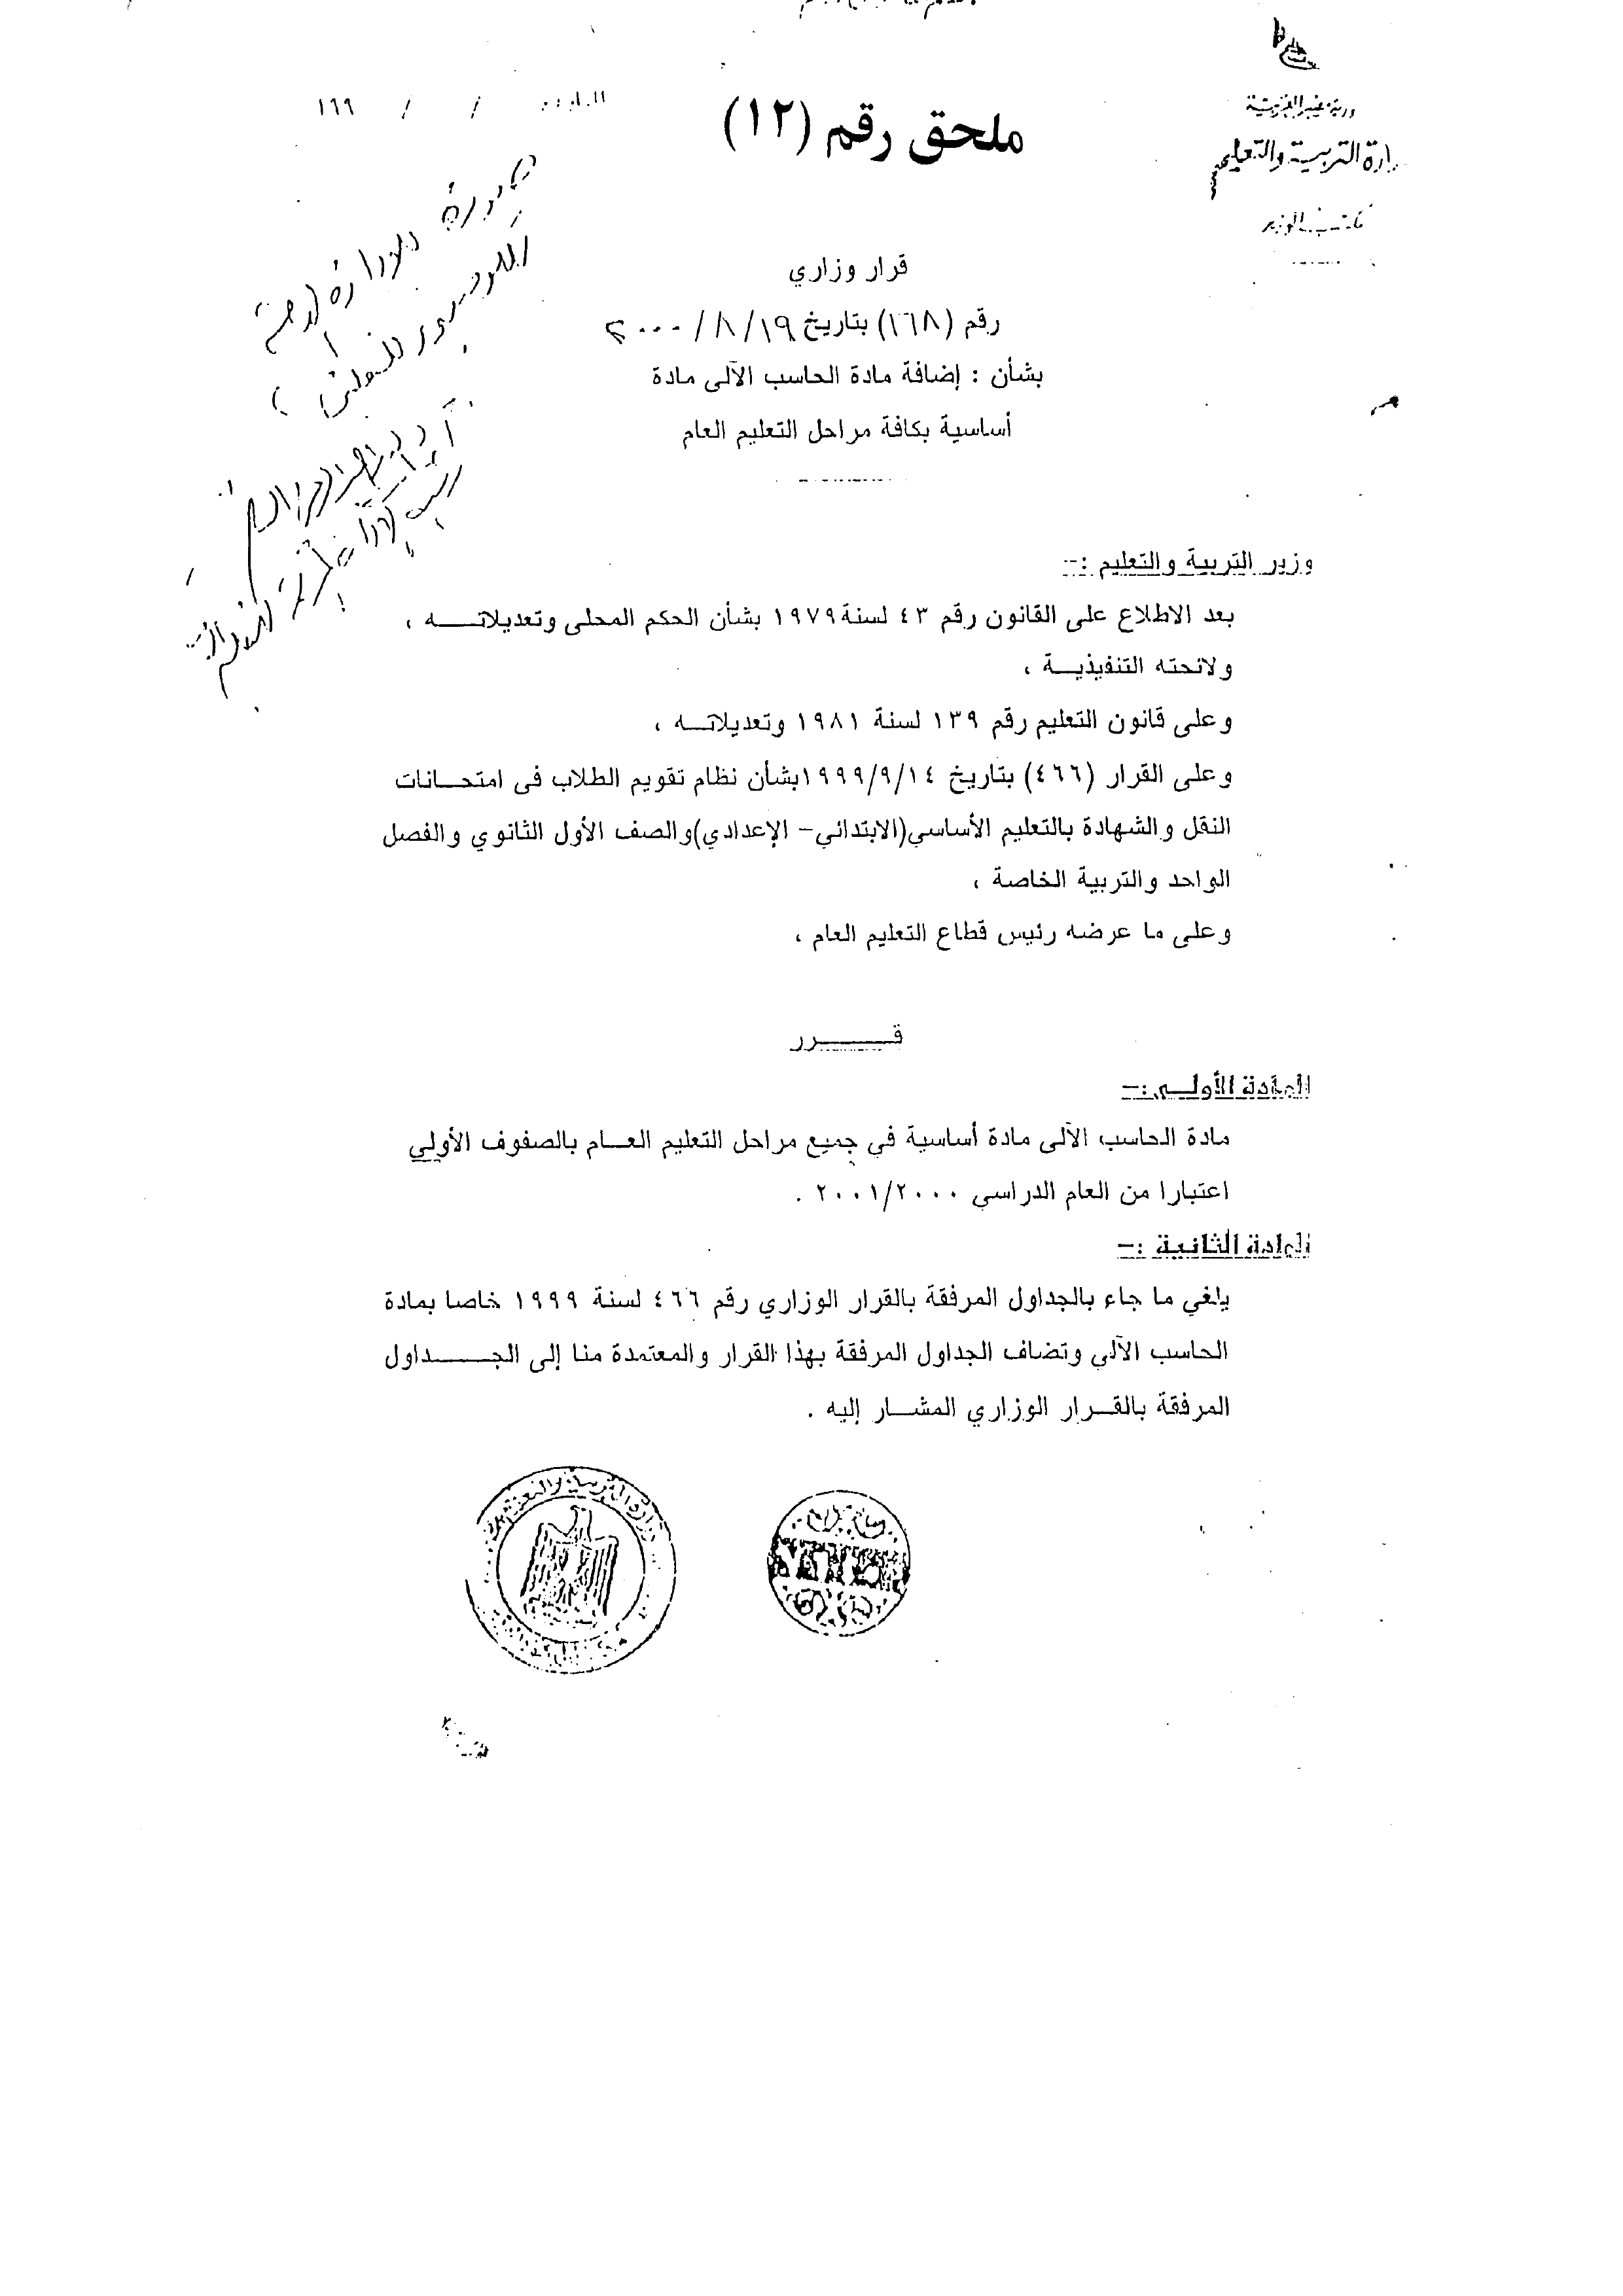 ملحق رقم (١٢)
وزارة التربية والتعليم
مكتب الوزير
قرار وزاري
رقم (١٦٨) بتاريخ ١٩/ ٨/ ٢٠٠٠
بشأن : إضافة مادة الحاسب الآلى مادة
أساسية بكافة مراحل التعليم العام
وزير التربية والتعليم :-
بعد الاطلاع على القانون رقم ٤٣ لسنة ١٩٧٩ بشأن الحكم المحلى وتعديلاتـــه ،
ولائحته التنفيذيــة ،
وعلى قانون التعليم رقم ١٣٩ لسنة ١٩٨١ وتعديلاتــه ،
وعلى القرار (٤٦٦) بتاريخ ١٩٩٩/٩/١٤بشأن نظام تقويم الطلاب فى امتحــانات
النقل والشهادة بالتعليم الأساسي(الابتدائي- الإعدادي)والصف الأول الثانوي والفصل
الواحد والتربية الخاصة ،
وعلى ما عرضه رئيس قطاع التعليم العام ،
قــــرر
المادة الأولــى:-
مادة الحاسب الآلى مادة أساسية في جميع مراحل التعليم العــام بالصفوف الأولي
اعتبارا من العام الدراسي ٢٠٠١/٢٠٠٠ .
المادة الثانية :-
يلغي ما جاء بالجداول المرفقة بالقرار الوزاري رقم ٤٦٦ لسنة ١٩٩٩ خاصا بمادة
الحاسب الآلي وتضاف الجداول المرفقة بهذا القرار والمعتمدة منا إلى الجــــداول
المرفقة بالقــرار الوزاري المشــار إليه .